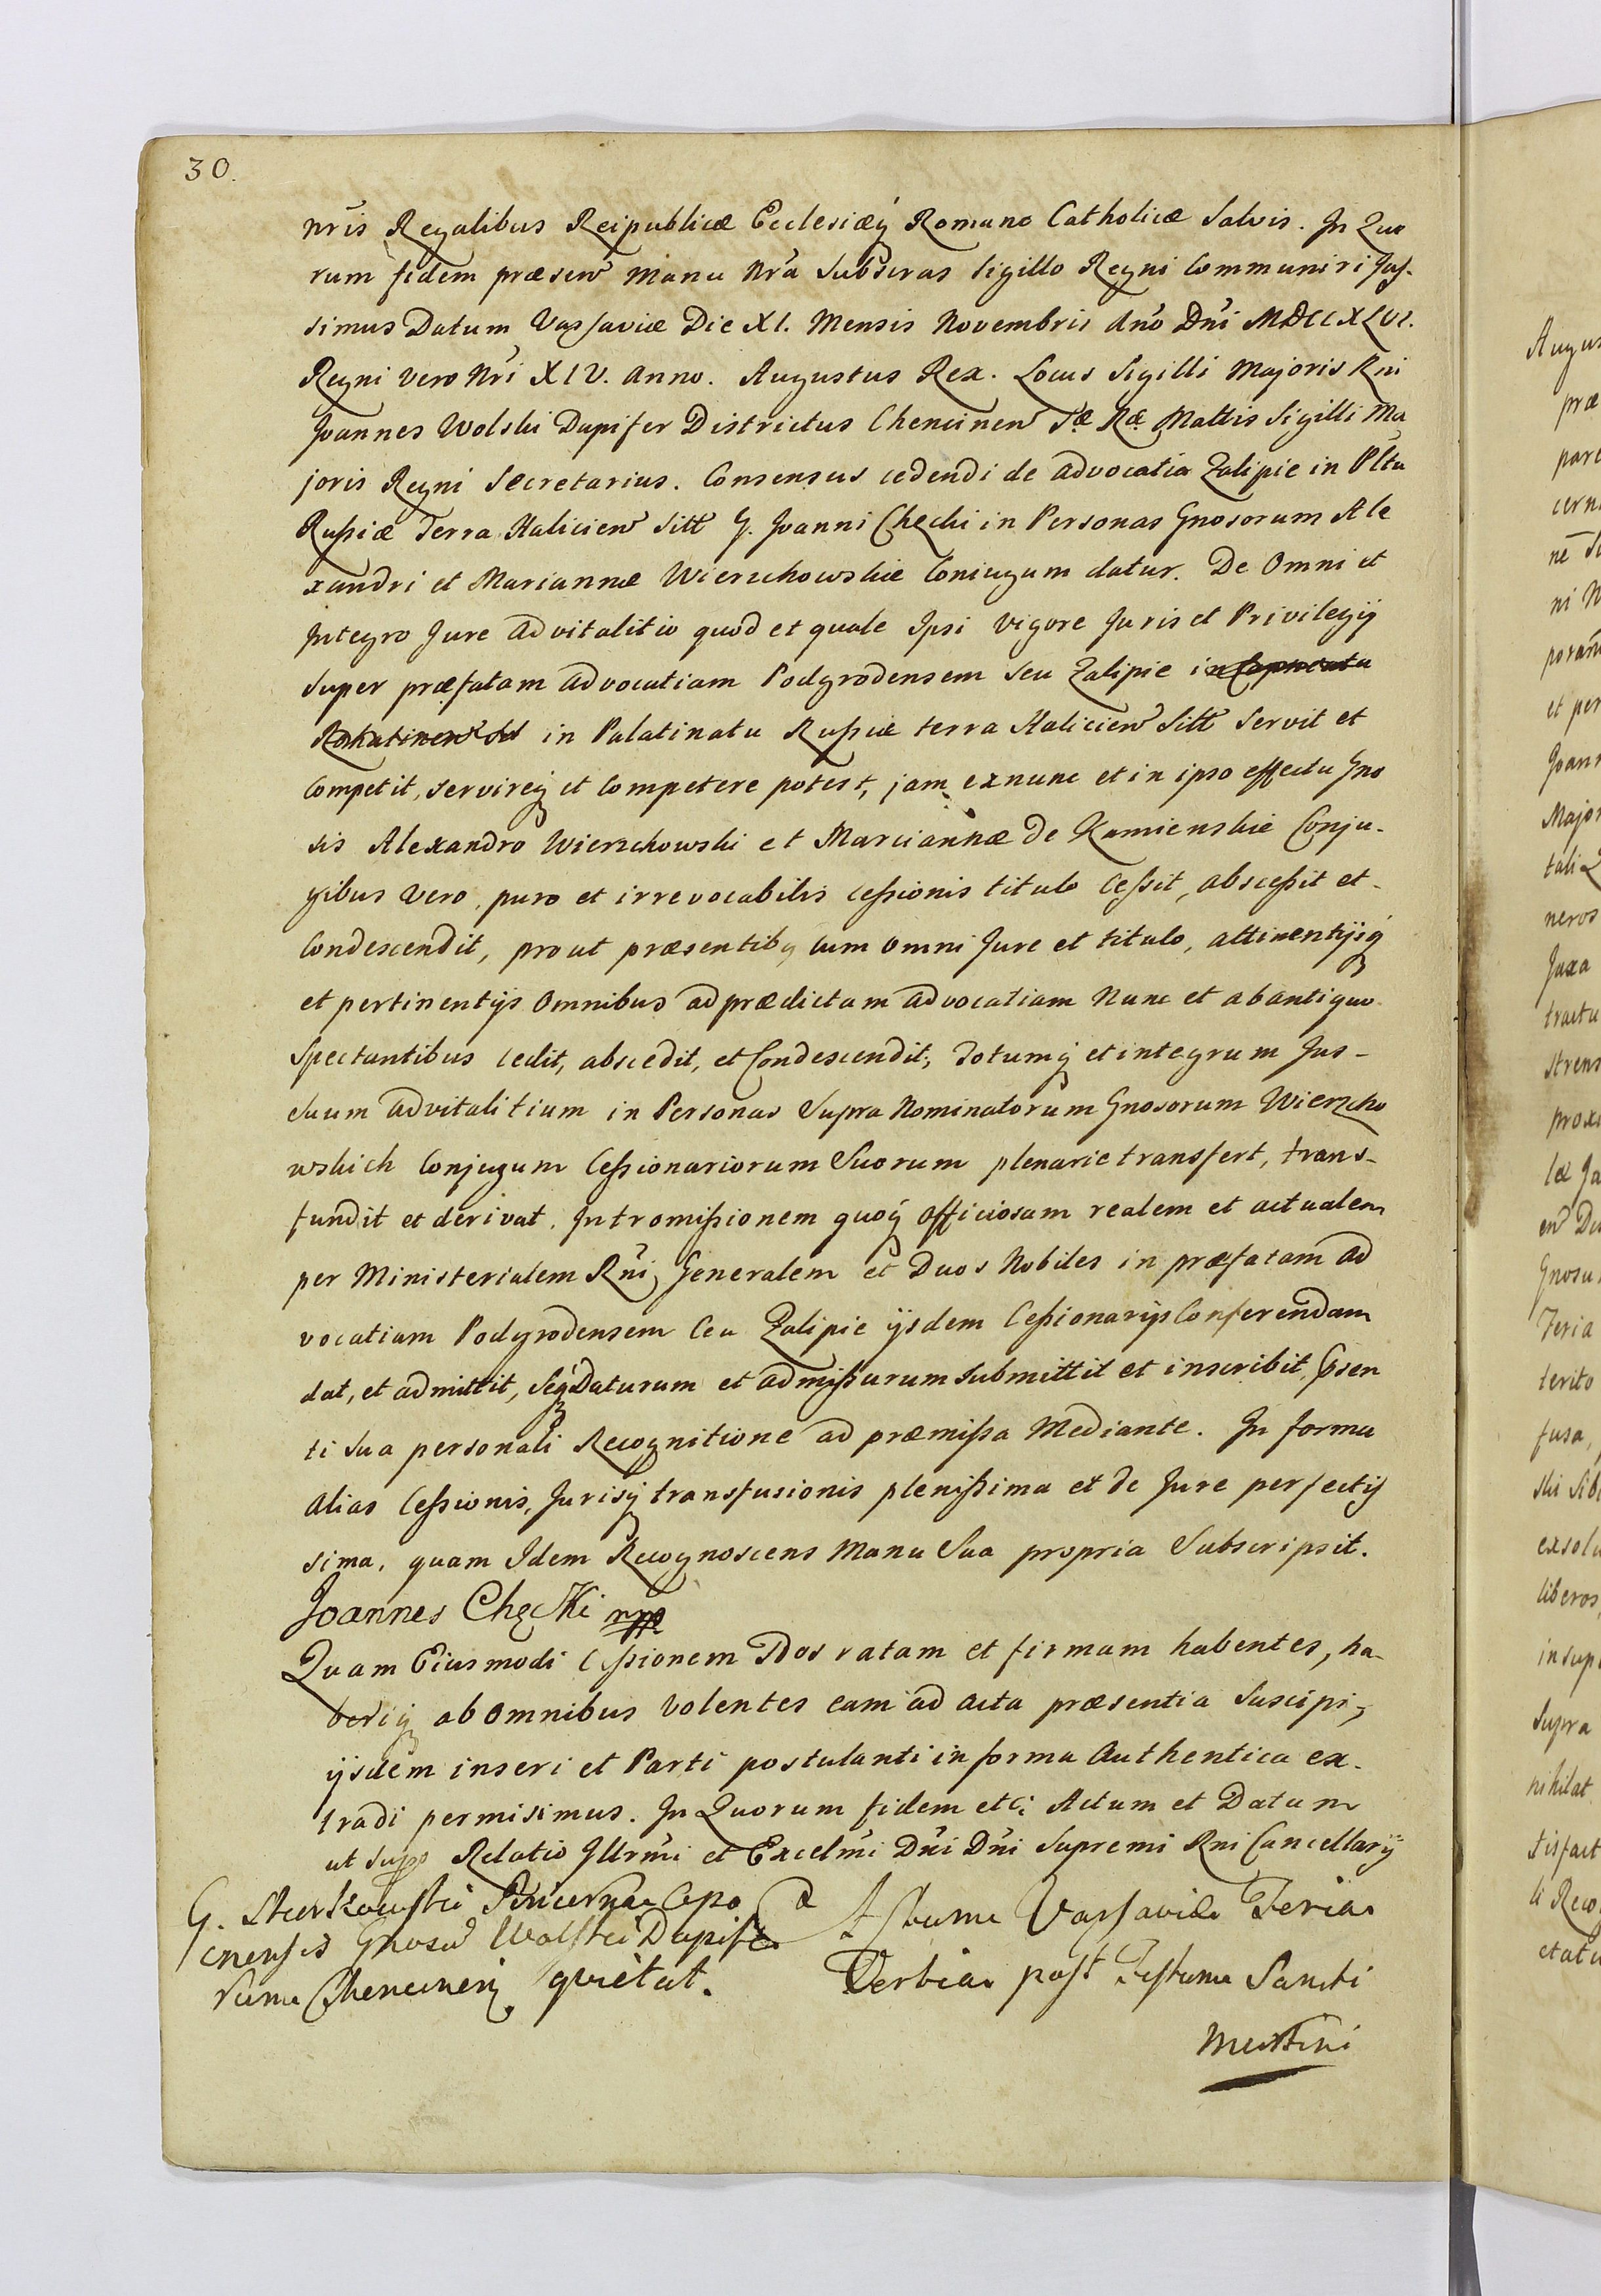 30.
nris Regalibus Reipublicæ Ecclesiæq Romano Catholicæ Salvis. In Quo
rum fidem præsen manu Nra Subscras Sigillo Regni Communiri Jus-
simus Datum Varsaviæ Die XI. Mensis Novembris Ano Dni MDCCXLVI.
Regni vero Nri XIV. anno. Augustus Rex. Locus Sigilli Majoris Rni
Joannes Wolski Dapifer Districtus Chencinen Sæ Ræ Mattis Sigilli Ma
joris Regni Secretarius. Consensus cedendi de advocatia Zalipie in Pltu
Russiæ Terra Halicien Sitt G. Joanni Chęcki in Personas Gnosorum Ale
xandri et Mariannæ Wierzchowskie Coniugum datur. De Omni et
Integro Jure advitalitio quod et quale Ipsi vigore Juris et Privilegij
super præfatam advocatiam Podgrodensem seu Zalipie in
in Palatinatu Russiæ terra Halicien Sitt Servit et
Competit, servireq et Competere potest, jam exnunc et in ipso effectu Gno
sis Alexandro Wierzchowski et Marciannæ de Kamienskie Conju-
gibus vero, puro et irrevocabilis cessionis titulo cessit, abscessit et
Condescendit, prout præsentibq cum omni Jure et titulo, attinentijsq
et pertinentijs Omnibus ad prædictam advocatiam Nunc et ab antiquo
Spectantibus cedit, abscedit, et Condescendit, Totumq et integrum Jus-
suum advitalitium in Personas Supra Nominatorum Gnosorum Wierzcho
wskich Conjugum Cessionariorum Suorum plenarie transfert, trans-
fundit et derivat. Intromissionem quoq officiosam realem et actualem
per Ministerialem Rni Generalem et Duos Nobiles in præfatam ad
vocatiam Podgrodensem Ceu Zalipie ijsdem Cessionarijs Conferendam
dat, et admittit, Seq Daturum et admissurum submittit et inscribit, Prsen
ti sua personali Recognitione ad præmissa Mediante. In forma
alias Cessionis, Jurisq transfusionis plenissima et de Jure perfectis
sima, quam Idem Recognoscens Manu Sua propria Subscripsit.
Joannes Chęcki mpp
Quam Eiusmodi Cessionem Nos ratam et firmam habentes, ha-
beriq ab omnibus volentes eam ad acta præsentia Suscipi,
ijsdem inseri et Parti postulanti in forma Authentica ex-
tradi permisimus. In Quorum fidem etc. Actum et Datum
ut Supra Relatio Illrmi et Excelmi Dni Dni Supremi Rni Cancellarij
G. Pincernæ
Gnosu Wolski Dapife
rum Chencinen quietat.
Actum Varsaviæ Feria
Tertia post Festum Sancti
Martini